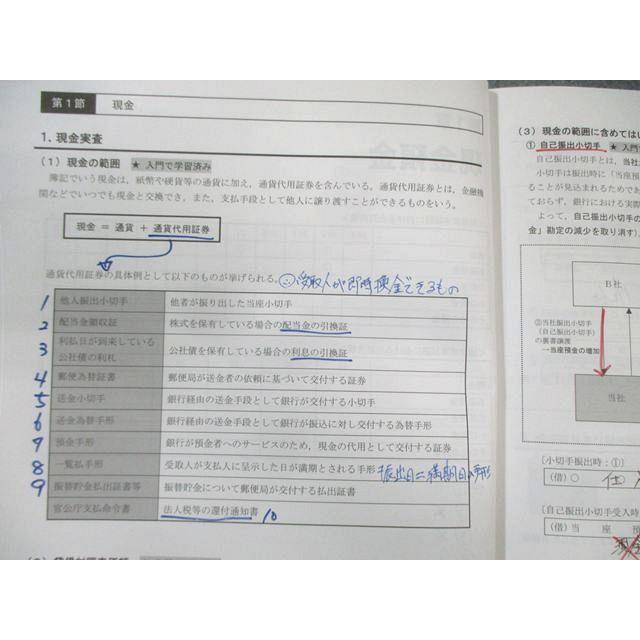 第1節 現金
1. 現金実査
(1) 現金の範囲 ★ 入門で学習済み
簿記でいう現金は，紙幣や硬貨等の通貨に加え，通貨代用証券を含んでいる。通貨代用証券とは，金融機
関などでいつでも現金と交換でき，また，支払手段として他人に譲り渡すことができるものをいう。
現金 = 通貨 + 通貨代用証券
通貨代用証券の具体例として以下のものが挙げられる。 受取人が即時換金できるもの
1 他人振出小切手 他者が振り出した当座小切手
2 配当金領収証 株式を保有している場合の配当金の引換証
3 利払日が到来している
公社債の利札 公社債を保有している場合の利息の引換証
4 郵便為替証書 郵便局が送金者の依頼に基づいて交付する証券
5 送金小切手 銀行経由の送金手段として銀行が交付する小切手
6 送金為替手形 銀行経由の送金手段として銀行が振込に対し交付する為替手形
7 預金手形 銀行が預金者へのサービスのため，現金の代用として交付する証券
8 一覧払手形 受取人が支払人に呈示した日が満期とされる手形 振出日=満期日の手形
9 振替貯金払出証書等 振替貯金について郵便局が交付する払出証書
官公庁支払命令書 法人税等の還付通知書 10
(3) 現金の範囲に含めてはい
① 自己振出小切手 ★ 入門
自己振出小切手とは，当社
小切手は振出時に「当座預
ることが見込まれるためであ
ておらず，銀行における実際
よって，自己振出小切手の
金」勘定の減少を取り消す)
B社
②当社振出小切手
(自己振出小切手)
の裏書譲渡
→当座預金の増加
当社
〔小切手振出時：①〕
(借) ○ 仕入
〔自己振出小切手受入時
(借) 当 座 預